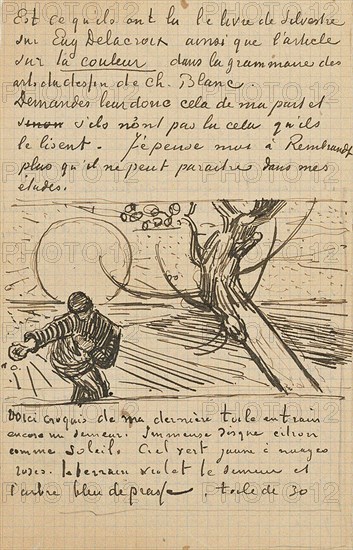 Est ce qu'ils ont lu le livre de Silvestre
sur Eug Delacroix ainsi que l'article
sur la couleur dans la grammaire des
arts du dessin de Ch. Blanc
Demandez leur donc cela de ma part et
sinon s'ils n'ont pas lu cela qu'ils
le lisent. J'pense moi à Rembrandt
plus qu'il ne peut paraitre dans mes
études.
Voici croquis de ma dernière toile en train
encore un semeur. Immense disque citron
comme soleil. Ciel vert jaune à nuages
roses. le terrain violet le semeur et
l'arbre bleu de prusse. toile de 30
PHOTO 12